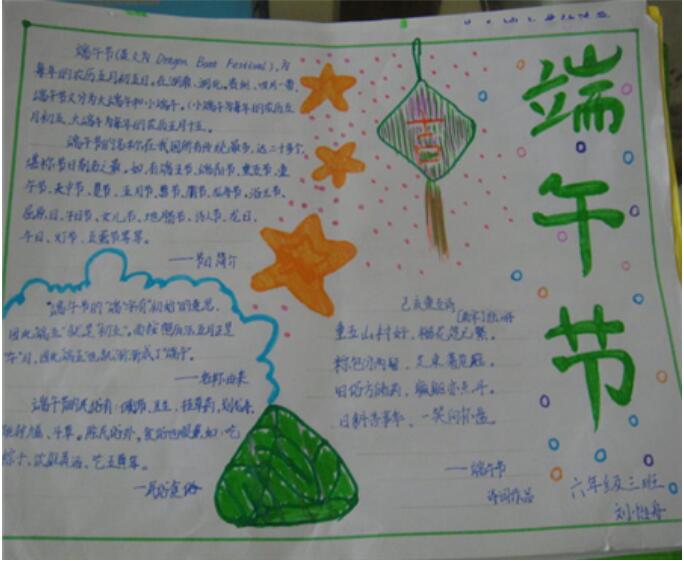 端午节(英文为 Dragon Boat Festival),为
每年的农历五月初五日。在湖南、湖北、贵州、四川一带,
端午节又分为大端午和小端午。(小端午为每年的农历五
月初五,大端午为每年的农历五月十五。
端午节的名称在我国所有传统最多,达二十多个,
堪称节日别名之最。如,有端五节、端阳节、重五节、重
午节、天中节、夏节、五月节、菖节、蒲节、龙舟节、浴兰节、
屈原日、午日节、女儿节、地腊节、诗人节、龙日、
午日、灯节、五蛋节等等。
——节日简介
"端午节的"端"字有"初始"的意思,
因此"端五"就是"初五"。而按照历法五月正是
"午"月,因此"端五"也就渐渐演成了"端午"。
——名称由来
端午节的民俗有:
吃
粽子、饮雄黄酒、吃五
——民俗
吉
己亥重五诗
重五山村好,榴花忽已繁。
粽包分两髻,艾束著危冠。
旧俗方储药,羸躯亦点丹。
日斜吾事毕,一笑向杯盘。
——端午节
诗词作品
端午节
六年级三班